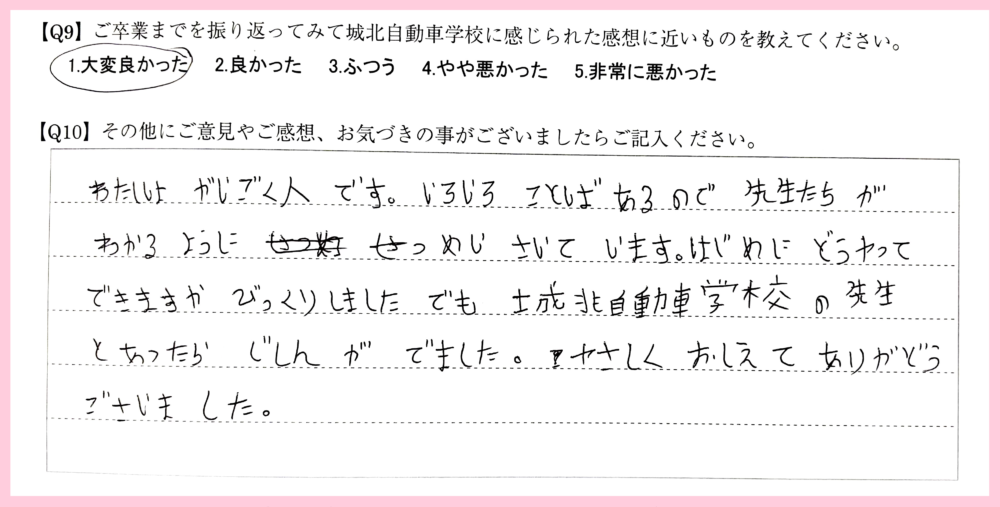 【Q9】ご卒業までを振り返ってみて城北自動車学校に感じられた感想に近いものを教えてください。
1.大変良かった 2.良かった 3.ふつう 4.やや悪かった 5.非常に悪かった
【Q10】その他にご意見やご感想、お気づきの事がございましたらご記入ください。
わたしは がじごく人 です。じろじろ ことば あるので 先生たち が
わかる ように せつ めじ さいて います。はじめに どうやって
できますか びっくりしました でも 城北自動車学校 の 先生
と あったら じしん が でました。 やさしく おしえて ありがどう
ごさじま した。